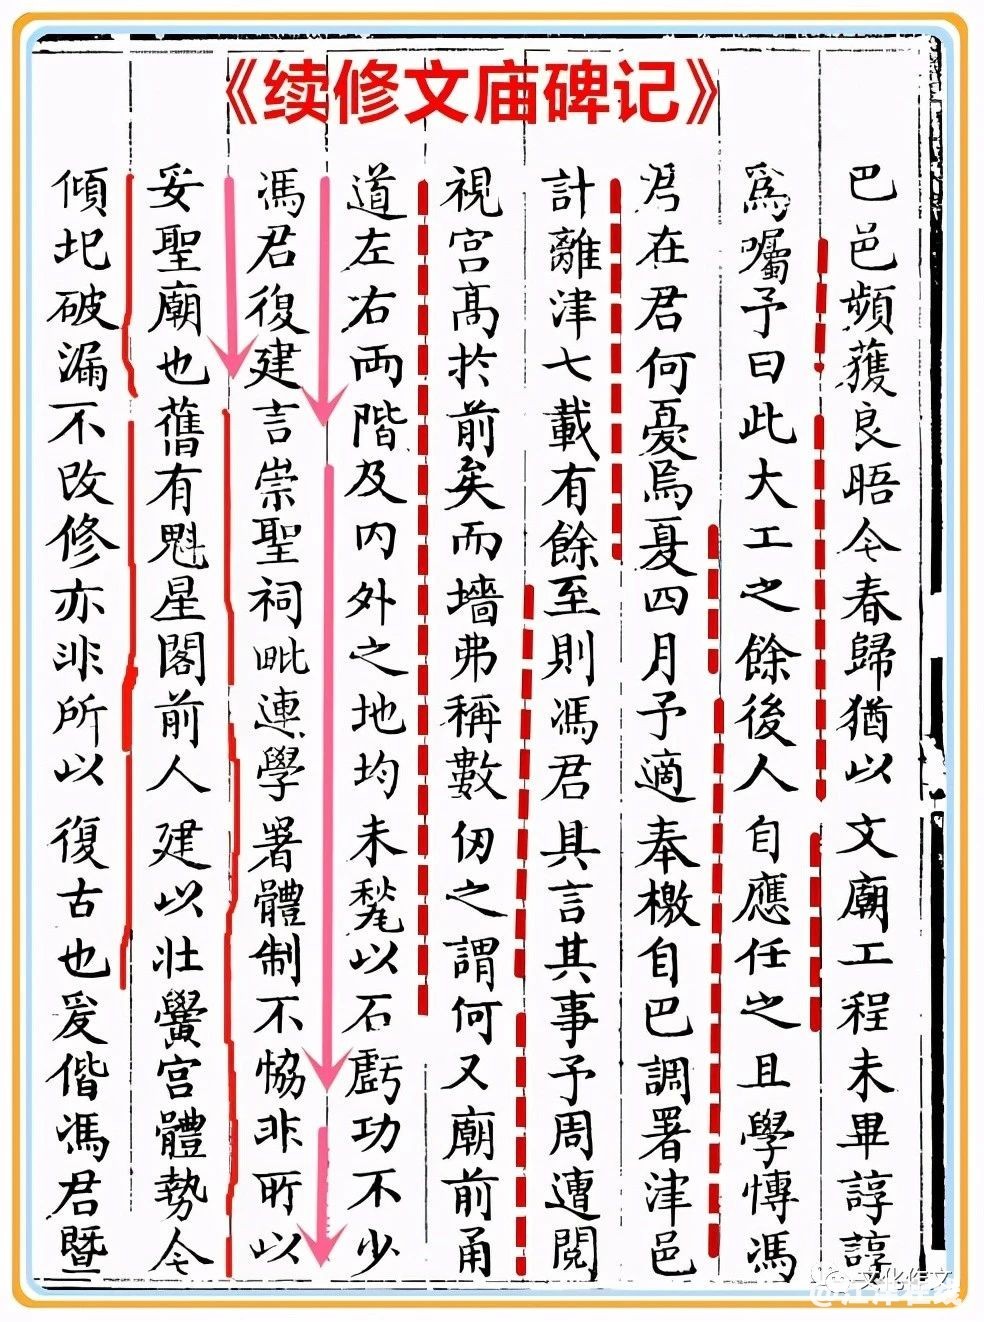 《续修文庙碑记》
巴邑頻獲良晤今春歸猶以文廟工程未畢諄諄
爲囑予曰此大工之餘後人自應任之且學博馮
君在君何憂焉夏四月予適奉檄自巴調署津邑
計離津七載有餘至則馮君具言其事予周遭閱
視宮高於前矣而墻弗稱數仞之謂何又廟前甬
道左右兩階及內外之地均未甃以石虧功不少
馮君復建言崇聖祠毗連學署體制不恊非所以
妥聖廟也舊有魁星閣前人建以壯黌宮體勢今
傾圮破漏不改修亦非所以復古也爰偕馮君暨
文化作文
@江津在线